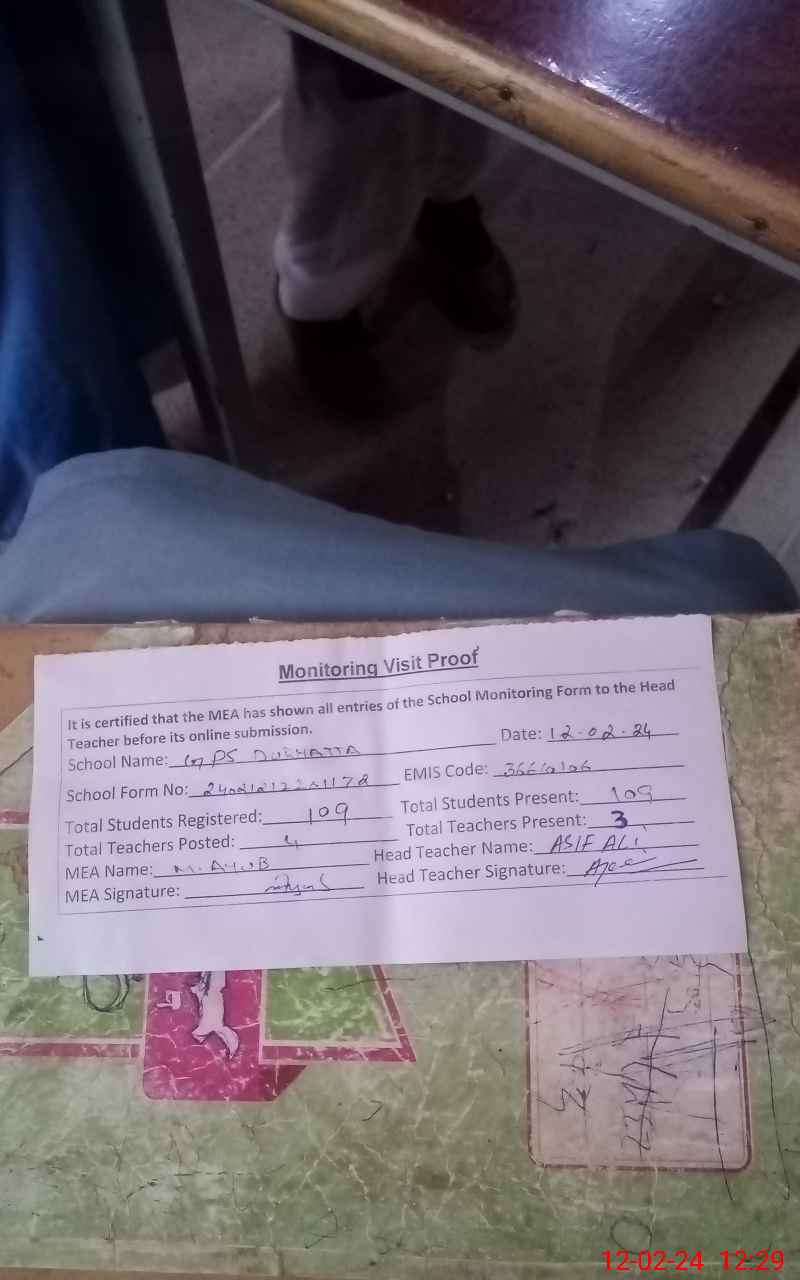 Monitoring Visit Proof
It is certified that the MEA has shown all entries of the School Monitoring Form to the Head
Teacher before its online submission.
School Name: GPS Date: 12-02-24
School Form No: EMIS Code:
Total Students Registered: 109 Total Students Present: 109
Total Teachers Posted: 4 Total Teachers Present: 3
MEA Name: M. AYUB Head Teacher Name: ASIF ALI
MEA Signature: Head Teacher Signature:
12-02-24 12:29